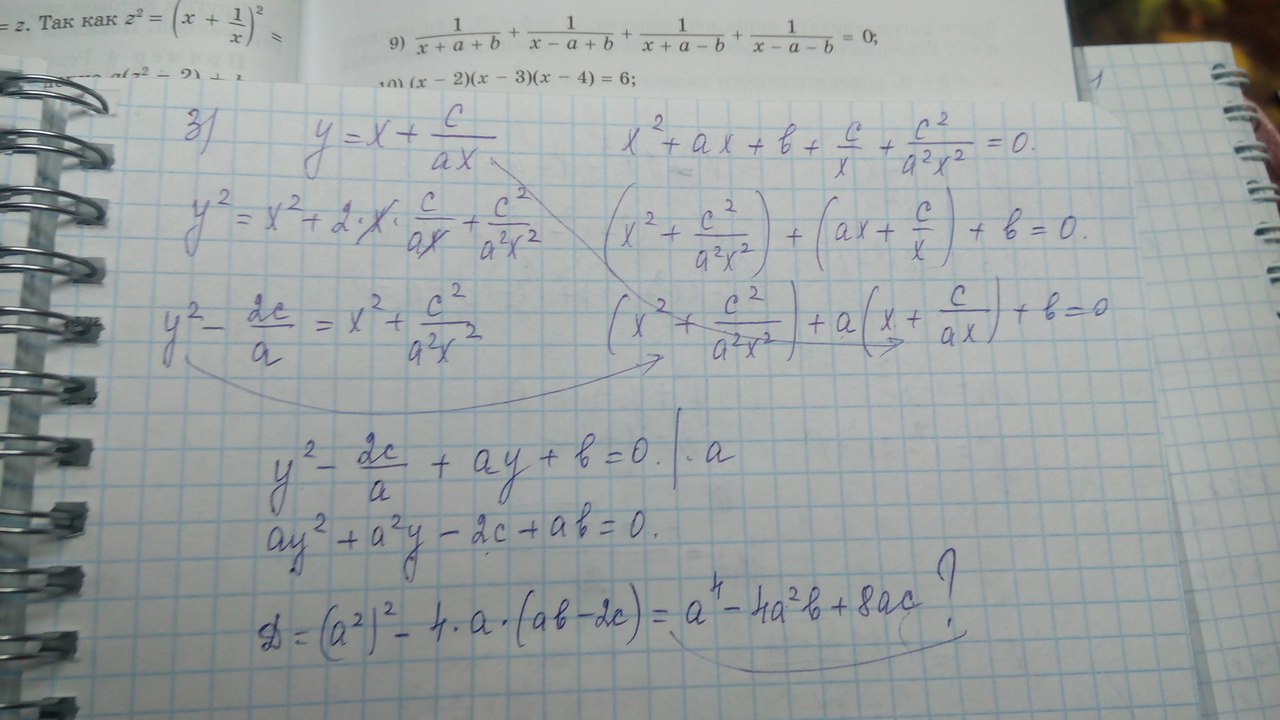 = z. Так как z² = (x + 1/x)² =
9) 1/(x + a + b) + 1/(x − a + b) + 1/(x + a − b) + 1/(x − a − b) = 0;
10) (x − 2)(x − 3)(x − 4) = 6;
1
3) y = x + c/(ax)
x² + ax + b + c/x + c²/(a²x²) = 0.
y² = x² + 2·x·c/(ax) + c²/(a²x²)
(x² + c²/(a²x²)) + (ax + c/x) + b = 0.
y² − 2c/a = x² + c²/(a²x²)
(x² + c²/(a²x²)) + a(x + c/(ax)) + b = 0
y² − 2c/a + ay + b = 0. | · a
ay² + a²y − 2c + ab = 0.
D = (a²)² − 4·a·(ab − 2c) = a⁴ − 4a²b + 8ac ?